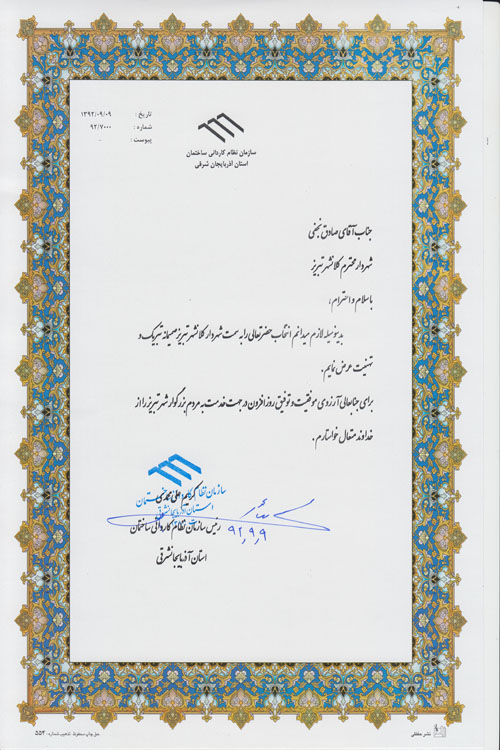 تاریخ : ۱۳۹۲/۰۹/۰۹
شماره : ۹۲/۷۰۰۰
پیوست : -
سازمان نظام کاردانی ساختمان
استان آذربایجان شرقی
جناب آقای صادق نجفی
شهردار محترم کلانشهر تبریز
با سلام و احترام ؛
بدینوسیله لازم میدانم انتخاب حضرتعالی را به سمت شهردار کلانشهر تبریز صمیمانه تبریک و
تهنیت عرض نمایم .
برای جنابعالی آرزوی موفقیت و توفیق روزافزون در جهت خدمت به مردم بزرگوار شهر تبریز را از
خداوند متعال خواستارم .
کریم علی محمدی
رئیس سازمان نظام کاردانی ساختمان
استان آذربایجانشرقی
۹۲,۹,۹
نشر عقیقی
حق چاپ محفوظ. تذهیب شماره: ۵۵۴